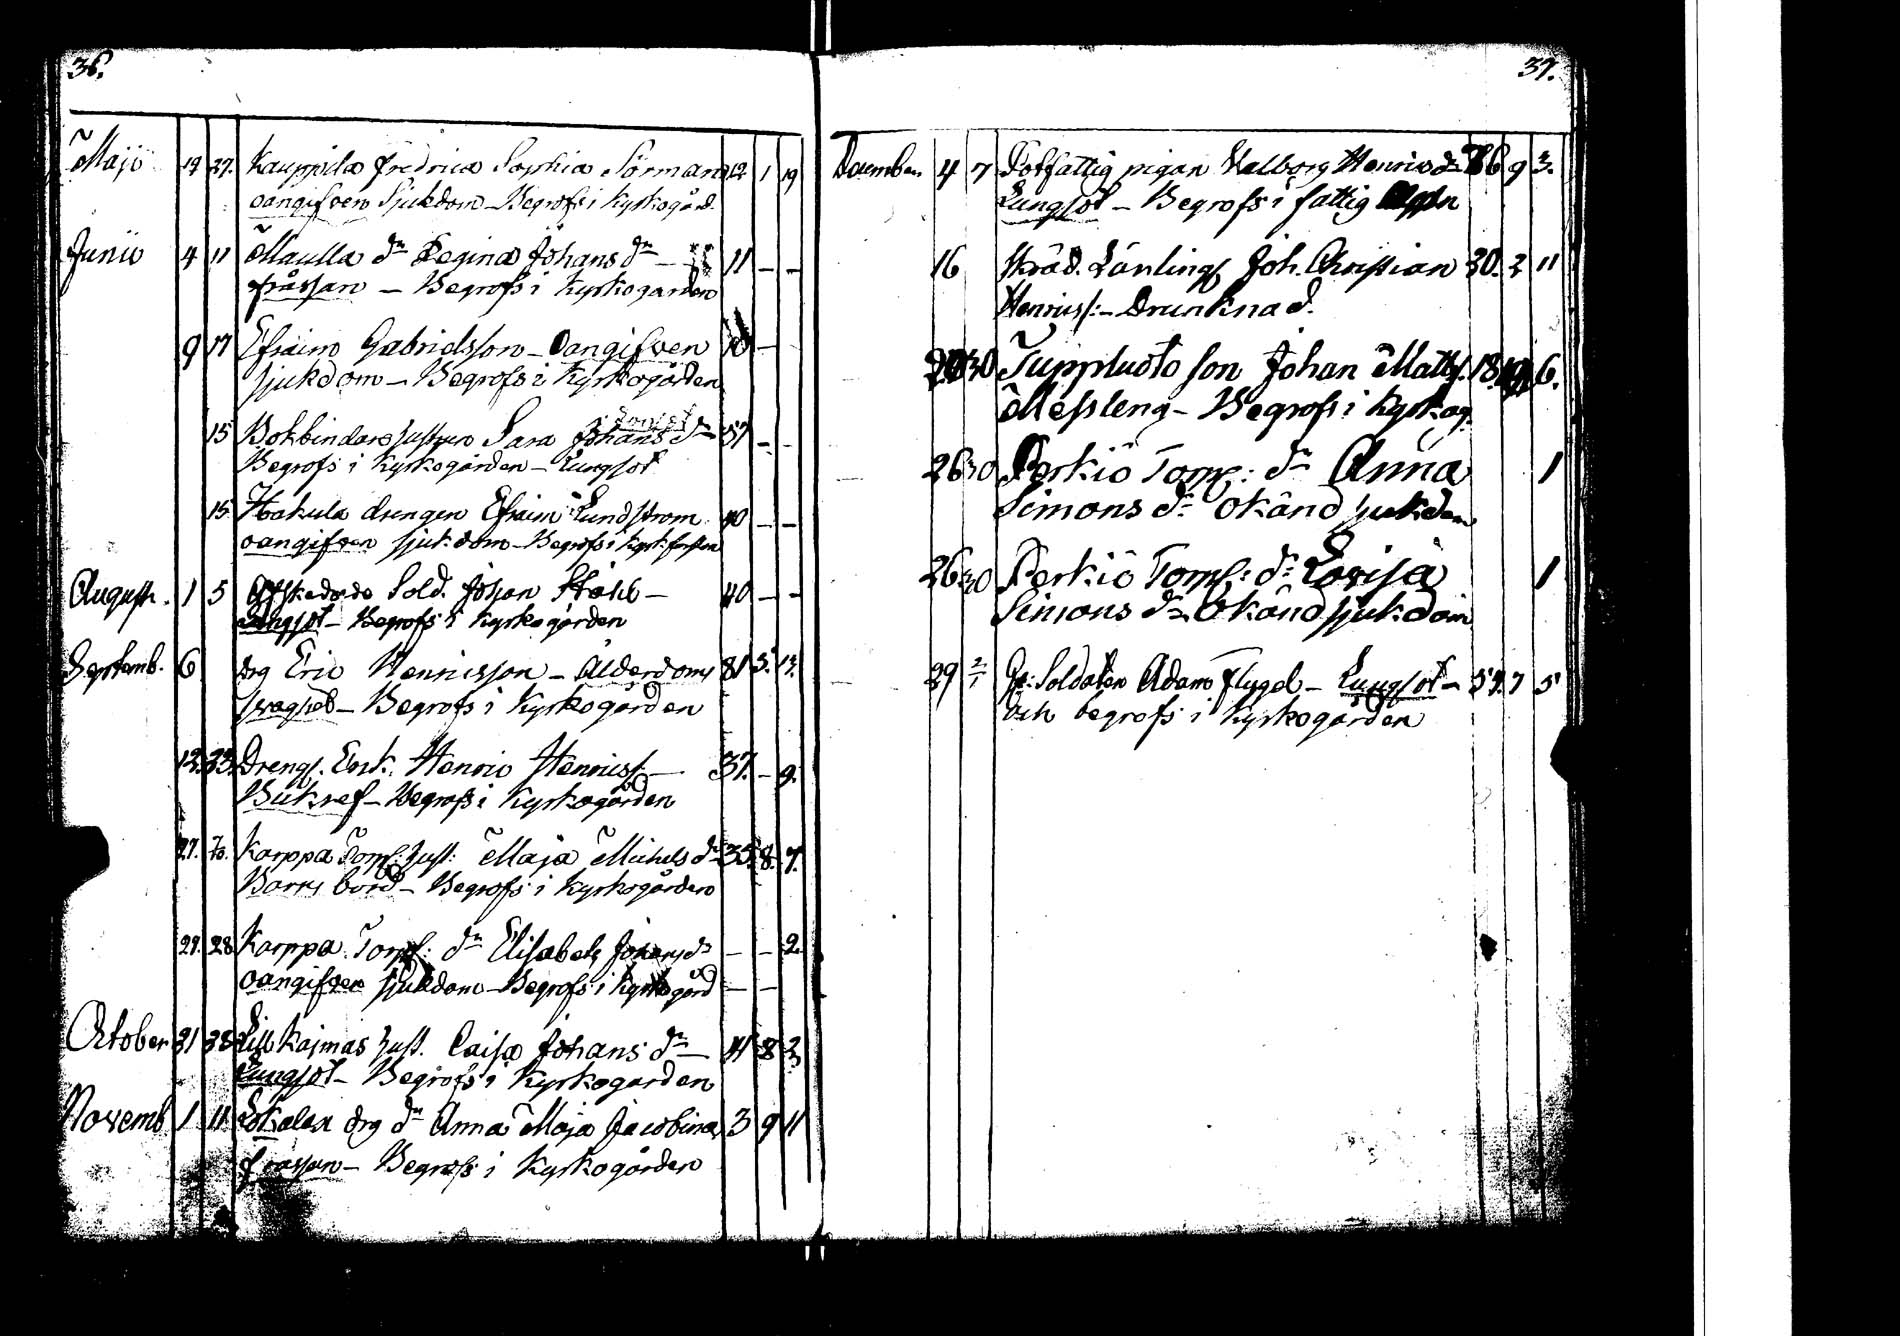 36.
Majo 19 27. Kauppila Fredrica Sophia Sörman 12 1 19
oangifven Sjukdom - Begrofs i Kyrkogård.
Junii 4 11 Maulla dr Regina Johans dr 11 - -
fråssan - Begrofs i Kyrkogården
9 17 Efraim Gabrielsson - Oangifven
sjukdom - Begrofs i Kyrkogården
15 Bokbindare hustrun Sara Johans dr 57 - -
Begrofs i Kyrkogården - Lungsot
15 Hakula drengen Efraim Lundström 40 - -
oangifven sjukdom - Begrofs i
August. 1 5 Afskedade Sold. Johan Ståhl - 40 - -
Lungsot - Begrofs i Kyrkogården
Septemb. 6 drg Eric Henricsson - Ålderdoms 81 5. 13.
svaghet - Begrofs i Kyrkogården
12. 23. Drengs. Enk. Henric Henricss. - 37. - 9.
Bukref - Begrofs i Kyrkogården
27. Karppa Torp. hust: Maja Michels dr 35. 8. 7.
Barns börd - Begrofs i Kyrkogården
29. 28 Karppa Torp: dr Elisabeth Johans dr - - 2
oangifven sjukdom - Begrofs i Kyrkogård - -
October 31 Lill Kajmas hust. Caisa Johans dr - 41 8 2
Lungsot - Begrofs i Kyrkogården
Novemb 1 11 drg dr Anna Maja Jacobina 3 9 11
fråssan - Begrofs i Kyrkogården
37.
December 4 7 Fattig pigan Valborg Henrics dr 9
Lungsot - Begrofs i fattig
16 Skräd. Lärling Joh. Christian 20. 2 11
Henricss: - Drunknad.
30 Tuppluoto son Johan Matts. 18. 6.
Messleng - Begrofs i Kyrkog.
26 30 Perkiö Torp: dr Anna 1
Simons dr Okänd sjukdom
26 30 Perkiö Torp: dr Lovisa 1
Simons dr Okänd sjukdom
29 2/1 Gr: Soldaten Adam Flygel - Lungsot - 59. 7 5
och begrofs i Kyrkogården